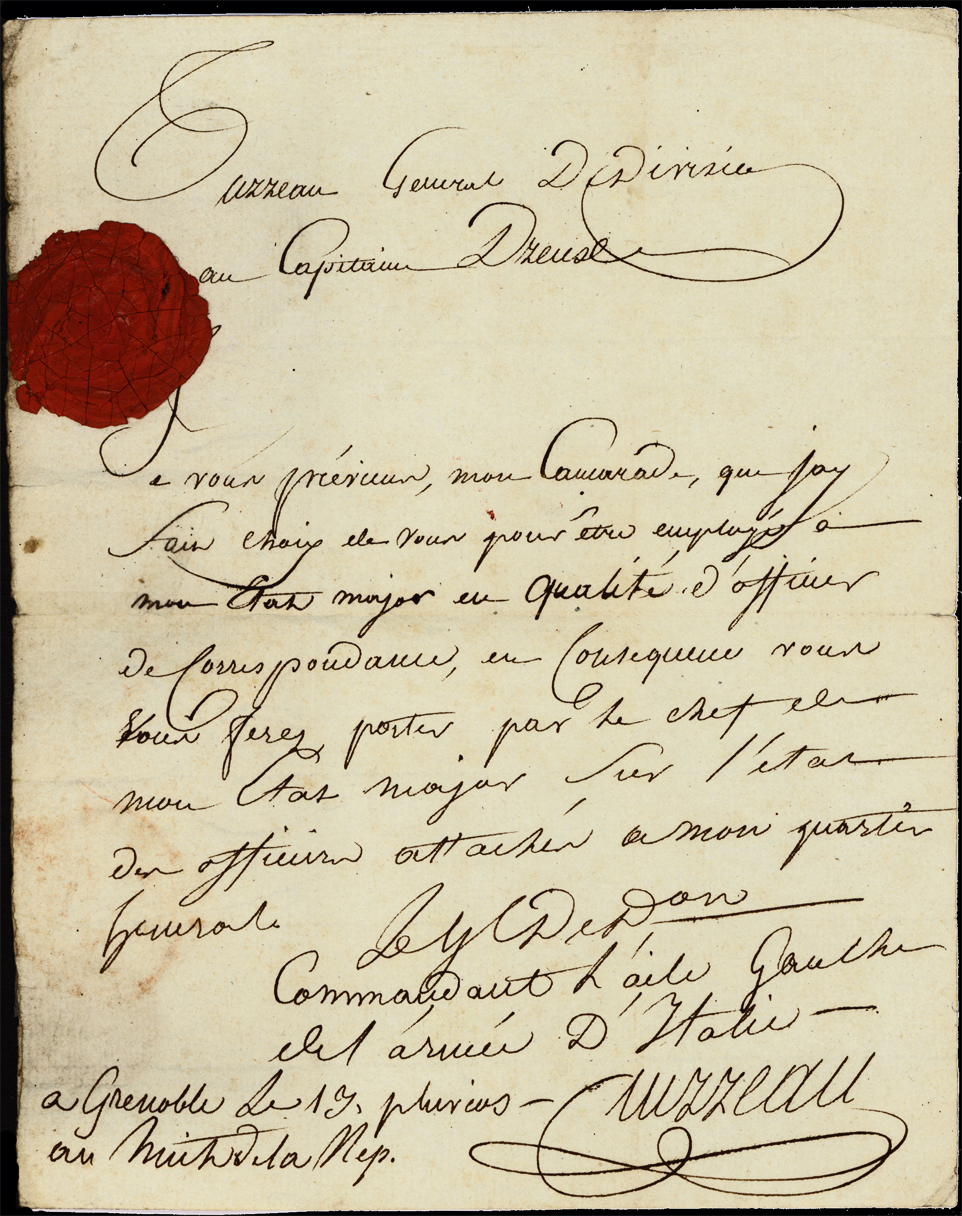 Tuzzeau General De Division
au Capitaine
Je vous préviens, mon Camarade, que jay
fait choix de vous pour être employé a
mon Etat major en qualité d'officier
de Correspondance, en Consequence vous
vous ferez porter par le chef de
mon Etat major sur l'état
des officiers attachés a mon quartier
general.
Le Gl De Don
Commandant L'aile Gauche
de l'armée D'Italie
a Grenoble Le 13. pluvios - Tuzzeau
au huit de la Rep.